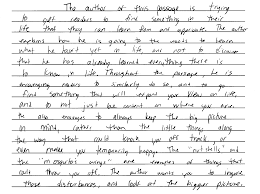 The author of this passage is trying
to get readers to find something in their
life that they can learn from and appreciate. The author
explains how he is going to the woods to learn
what he hasn't yet in life, and not to discover
that he has already learned everything there is
to know in life. Throughout the passage, he is
encouraging readers to similarly do so, and to go
find something that will impact your views on life,
and to not just be content in where you are.
He also manages to always keep the big picture
in mind rather than the little things along
the way that could knock you off track or
even make you temporarily happy. The "nutshells" and
the "mosquito's wings" are examples of things that
can throw you off. The author wants you to ignore
those disturbances, and look at the bigger picture.